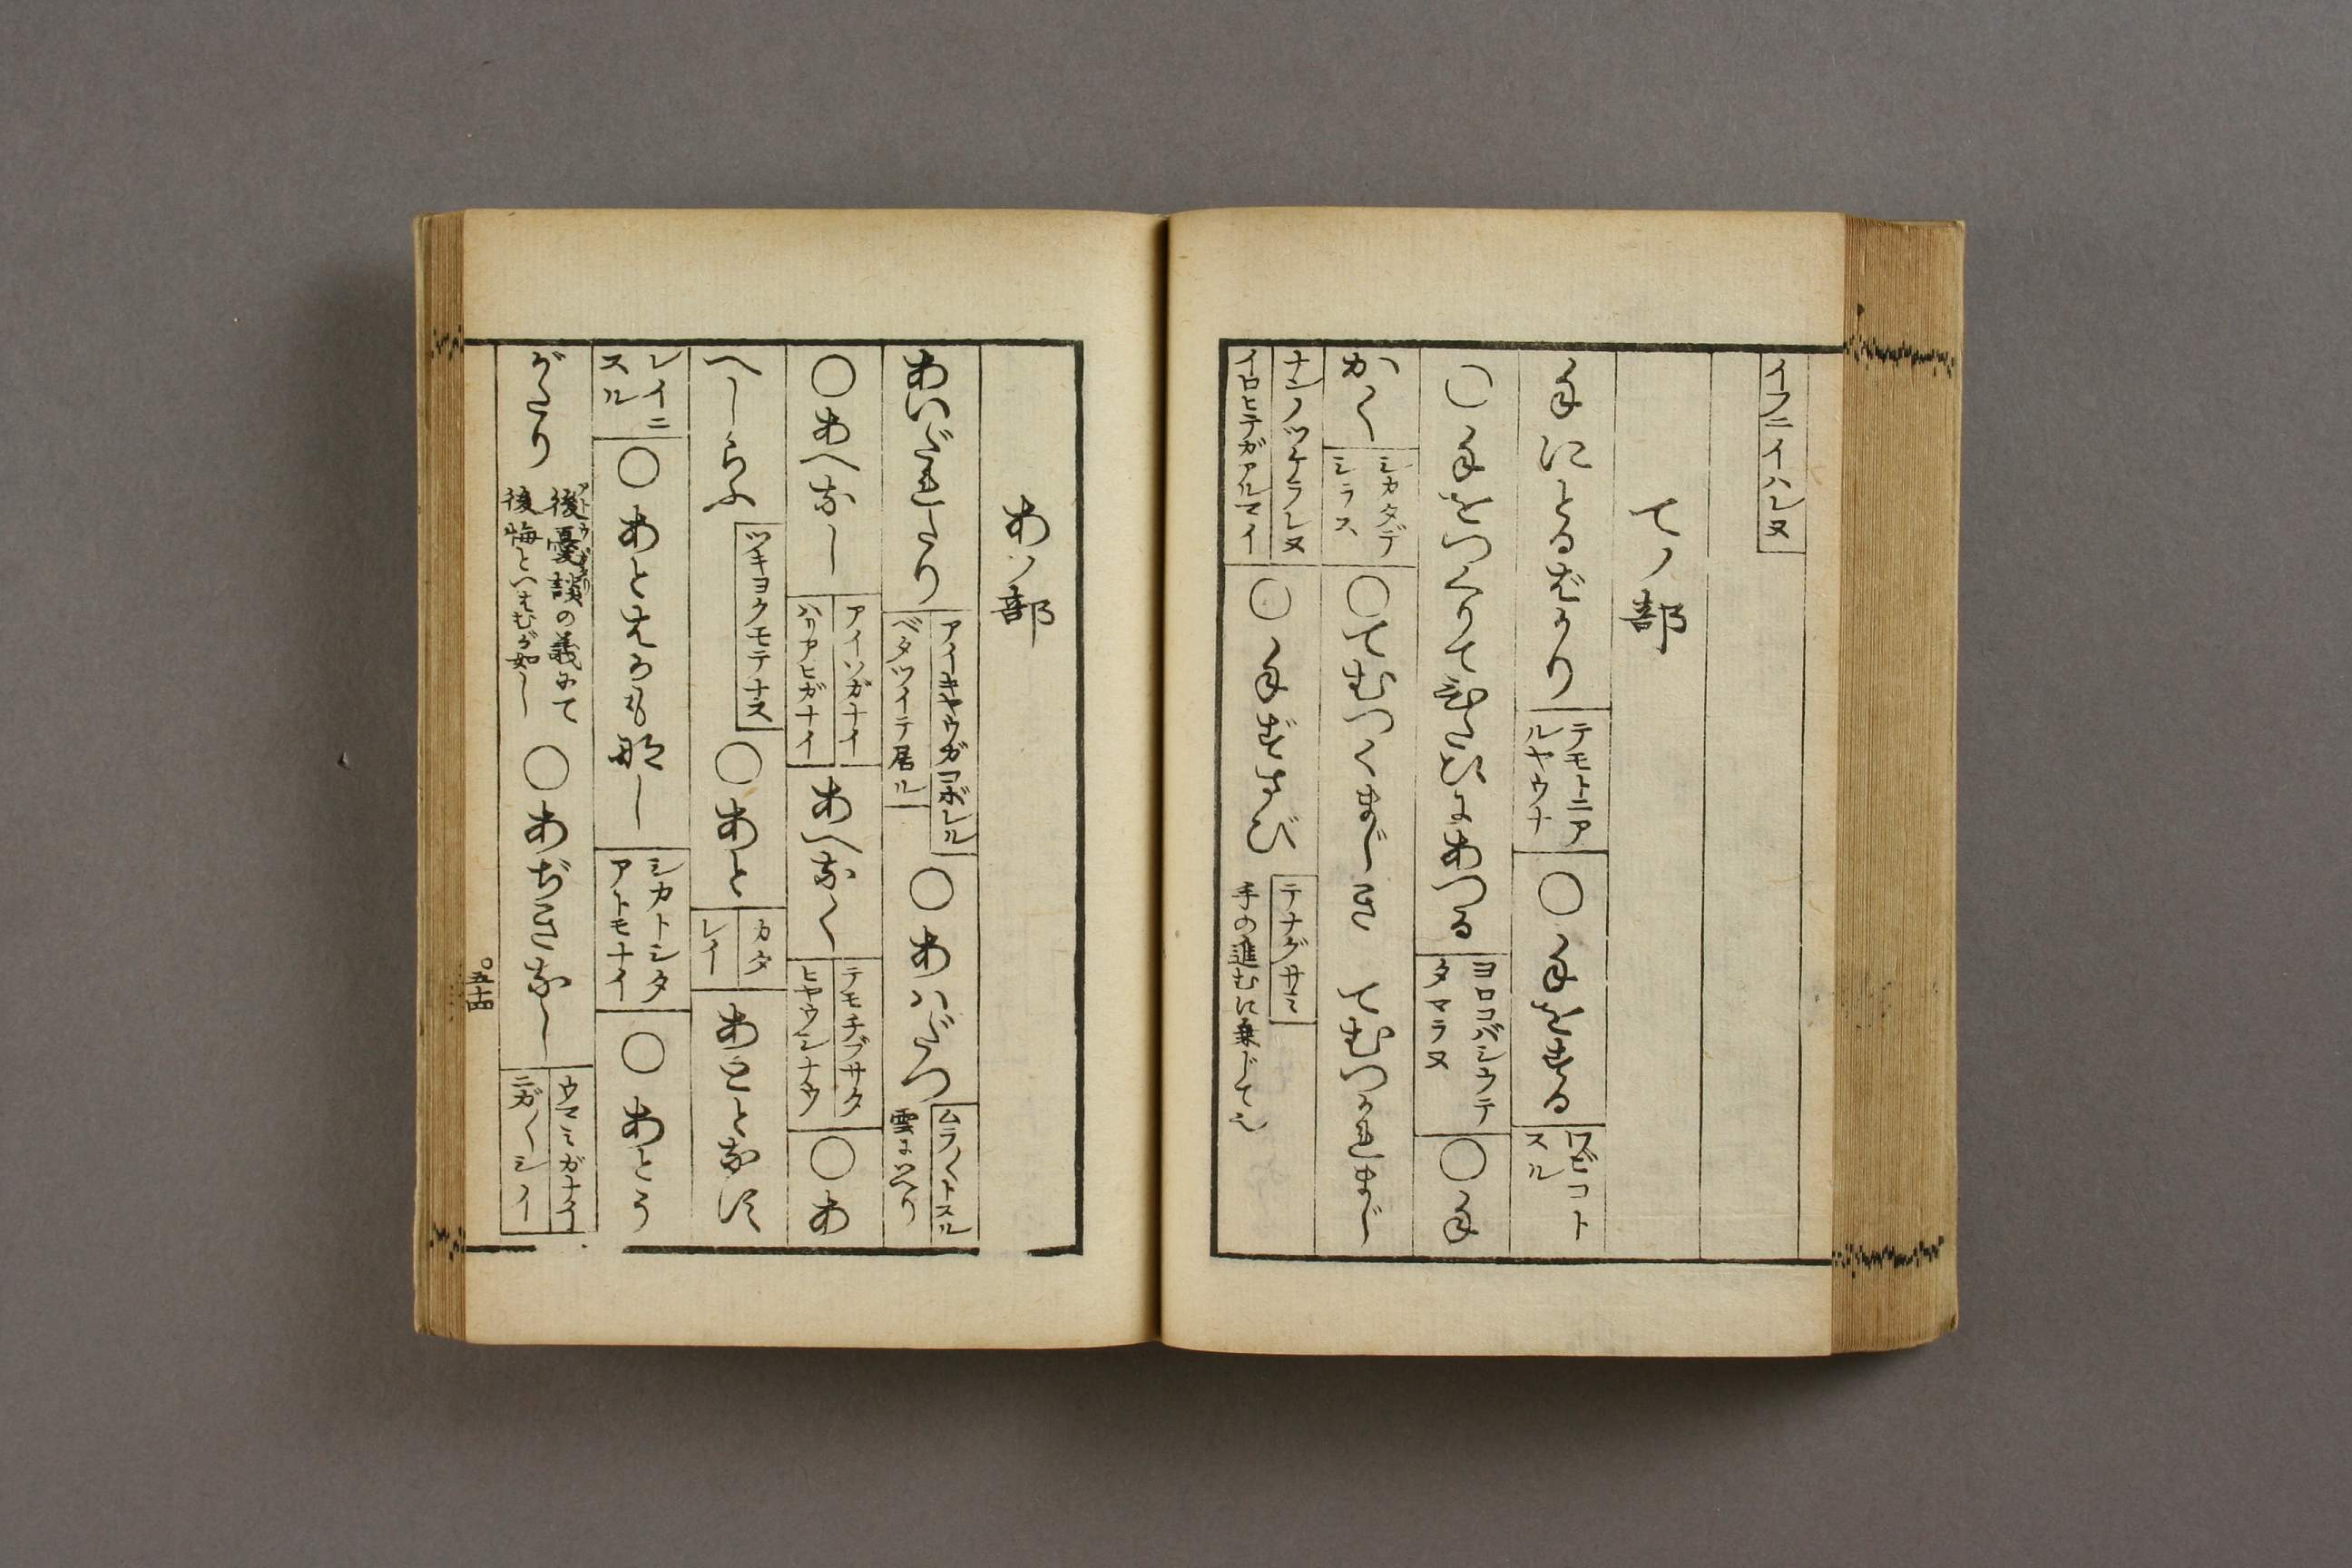 イフニイハレヌ
てノ部
手にとるばかり
テモトニア
ルヤウナ
○手をする
ワビコト
スル
○手をつくりて
にあつる
ヨロコバシウテ
タマラヌ
○手
かく
シカタデ
シラス
○てむつくまじき てむつかれまじ
ナンノツケラレヌ
イロヒテガアルマイ
○手ずさび
テナグサミ
手の進むに乗じて也
あノ部
あいだれたり
アイキヤウガコボレル
ベタツイテ居ル
○あハだつ
ムラ〱トスル
雲にいへり
○あへなし
アイソガナイ
ハリアヒガナイ
あへなく
テモチブサタ
ヒヤウシナウ
○あ
へしらふ
ツキヨクモテナス
○あと
カタ
レイ
あととなす
レイニ
スル
○あとはかも那し
シカトシタ
アトモナイ
○あとう
がたり
後憂談の義にて
後悔といはむが如し
○あぢきなし
ウマミガナイ
ニガ〱シイ
○五十四